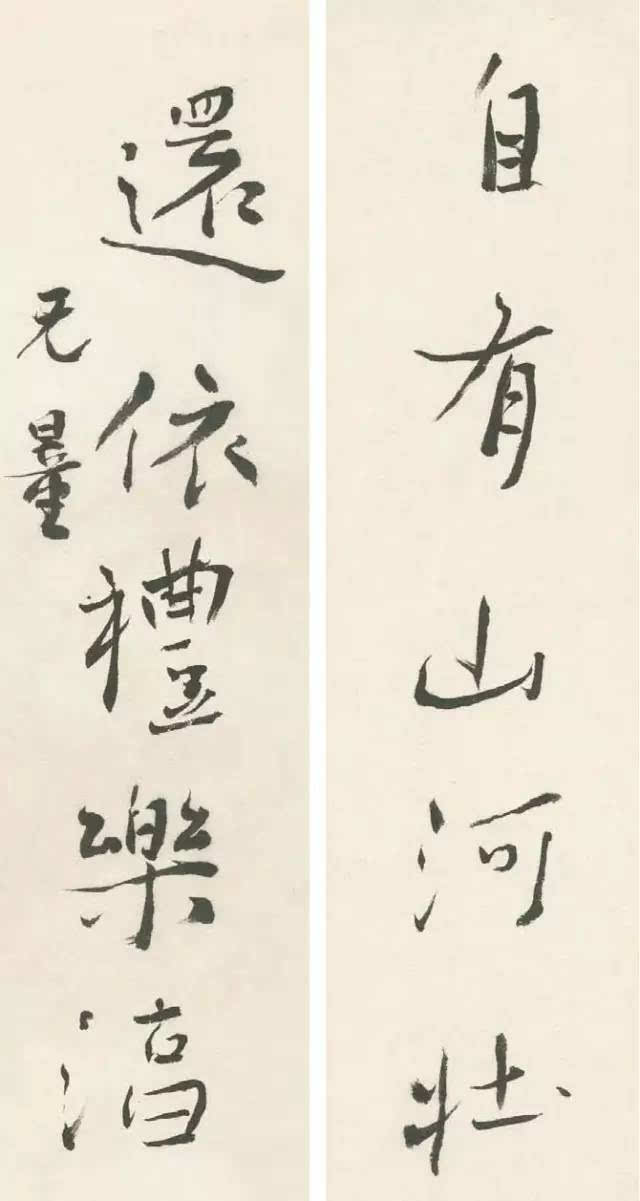 自有山河壮
還依禮樂淳
无量